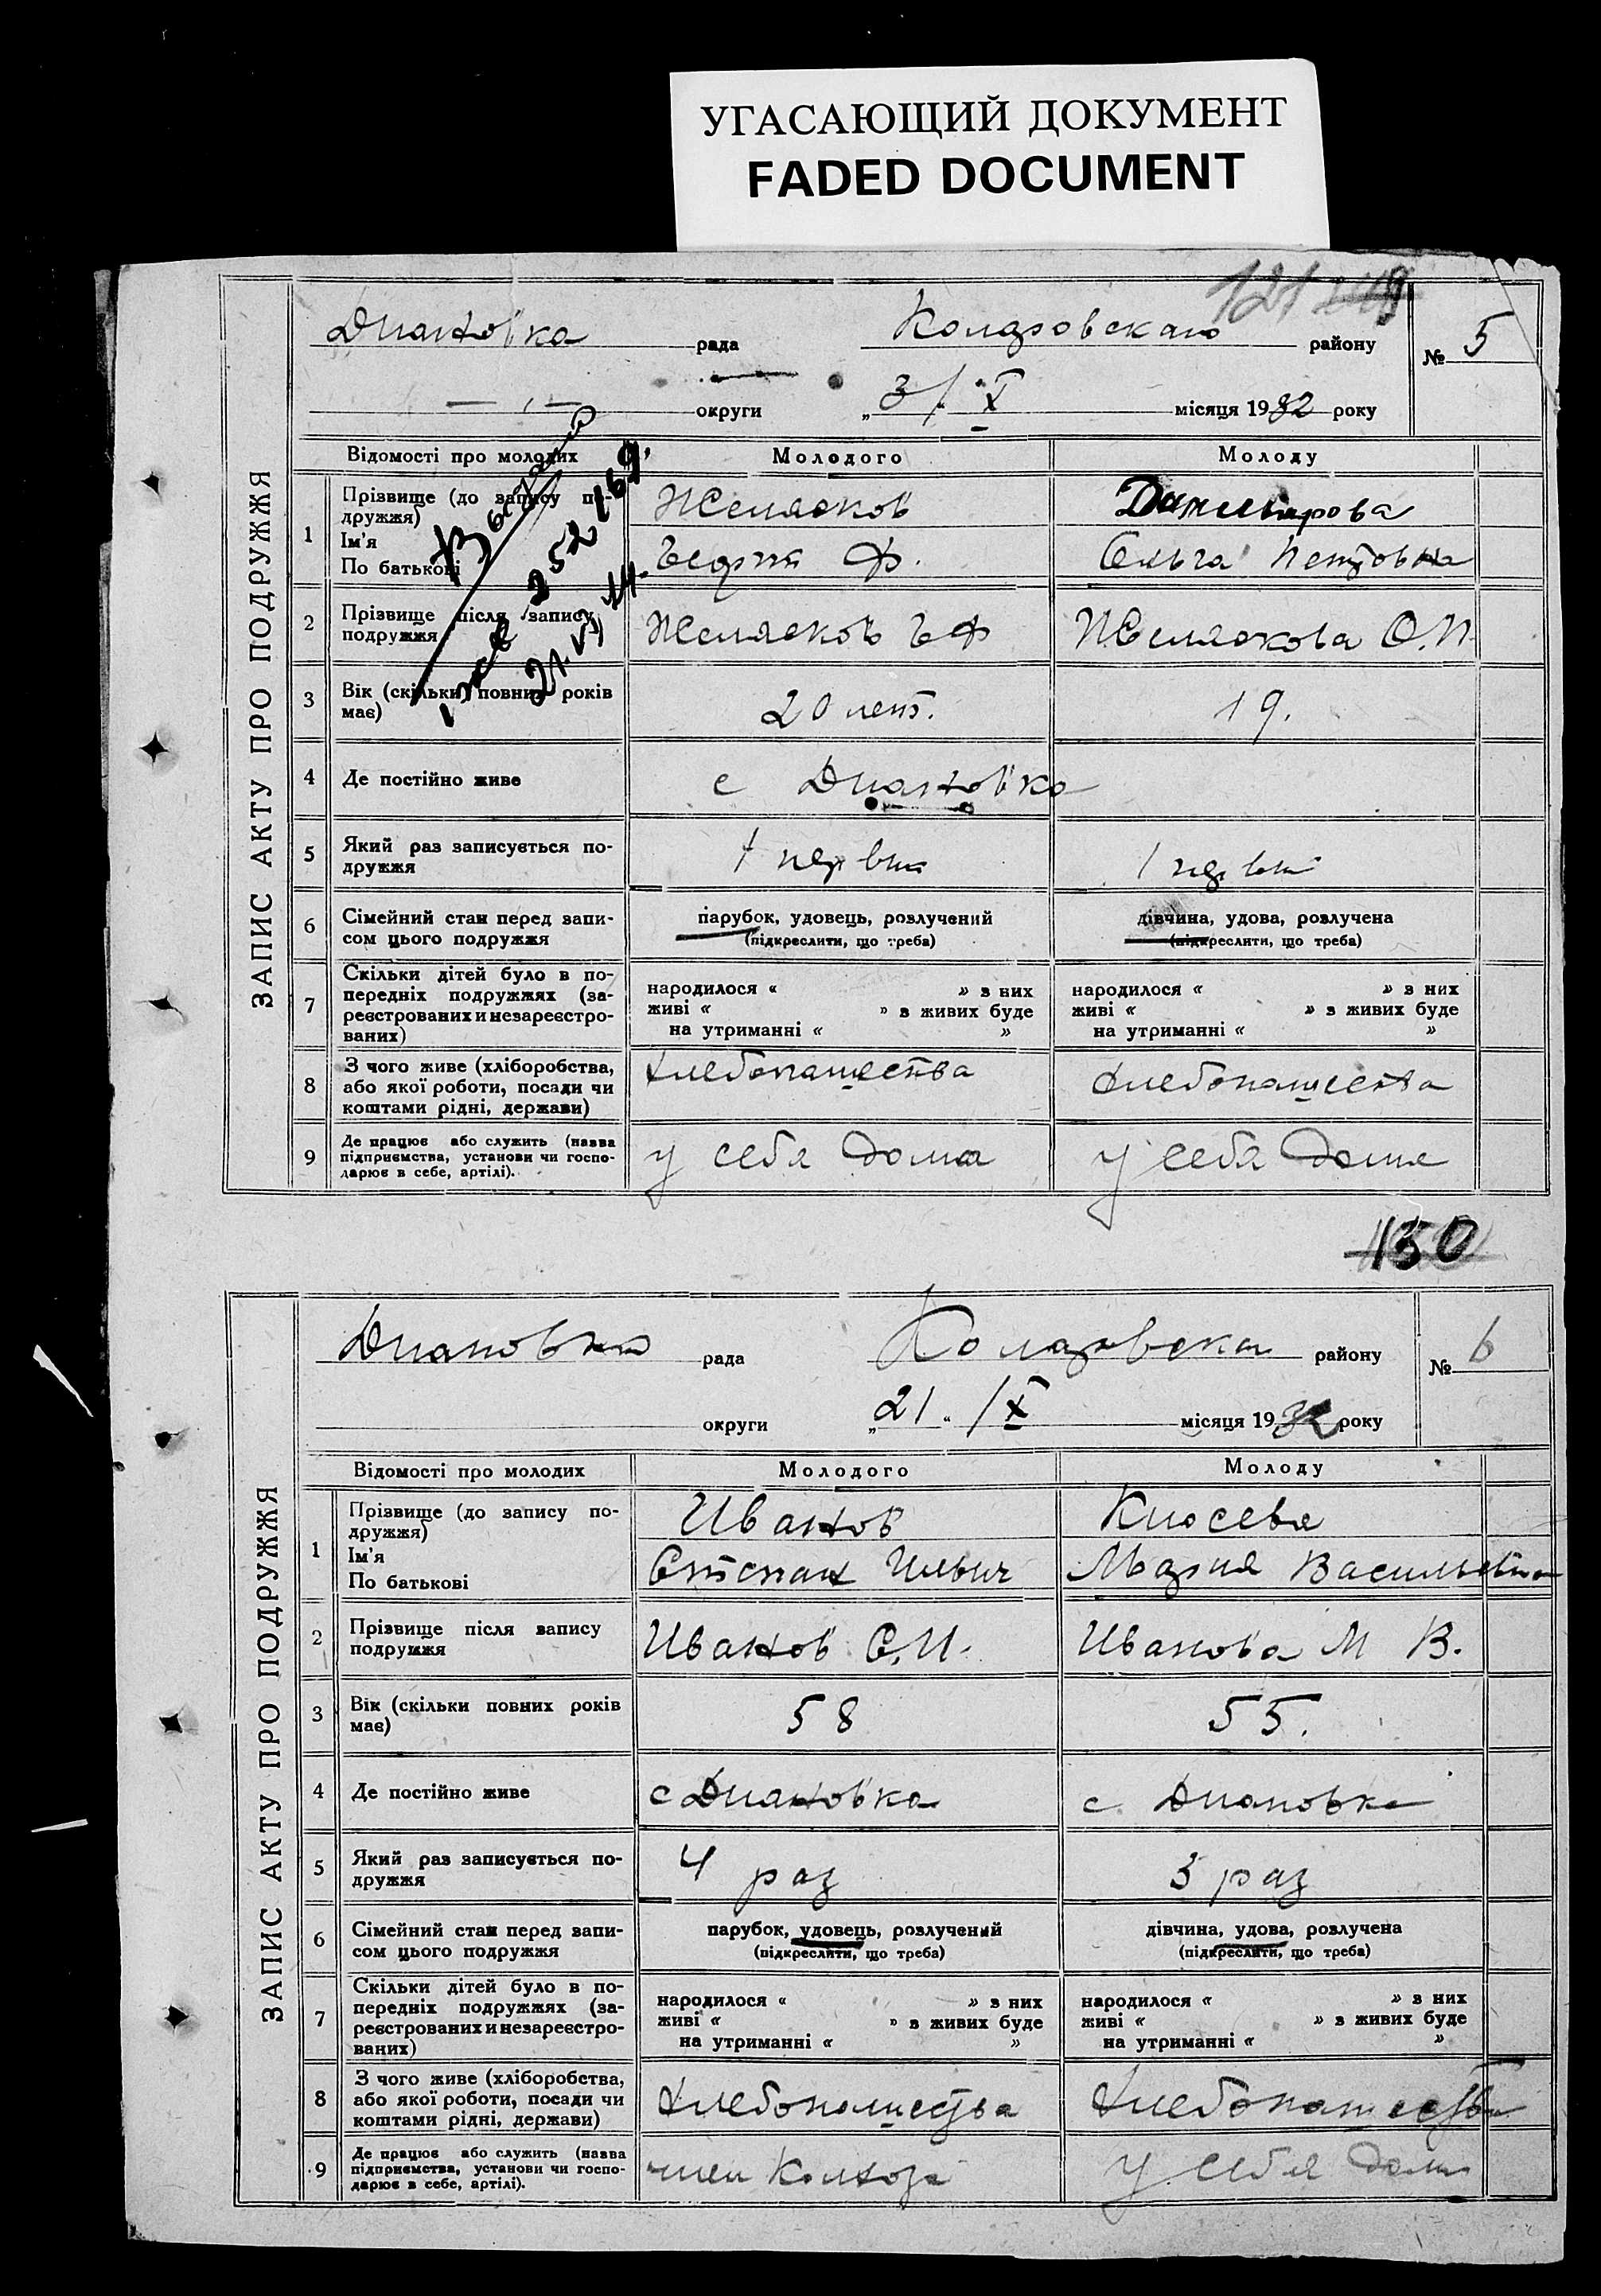 УГАСАЮЩИЙ ДОКУМЕНТ
FADED DOCUMENT
121
Диановка рада району № 5
округи „3/ X місяця 1932 року
ЗАПИС АКТУ ПРО ПОДРУЖЖЯ
Відомості про молодих Молодого Молоду
1 Прізвище (до запису по-
дружжя)
Ім'я
По батькові
Желясков
Ф. Ольга Петровна
2 Прізвище після запису
подружжя
Желясков Ф Желяскова О.П
3 Вік (скільки повних років
має)
20 лет. 19.
4 Де постійно живе с Диановка
5 Який раз записується по-
дружжя
1 1
6 Сімейний стан перед запи-
сом цього подружжя
парубок, удовець, розлучений дівчина, удова, розлучена
(підкреслити, що треба) (підкреслити, що треба)
7 Скільки дітей було в по-
передніх подружжях (за-
реєстрованих и незареєстро-
ваних)
народилося « » з них народилося « » з них
живі « » з живих буде живі « » з живих буде
на утриманні « » на утриманні « »
8 З чого живе (хліборобства,
або якої роботи, посади чи
коштами рідні, держави)
Хлебопашества Хлебопашества
9 Де працює або служить (назва
підприємства, установи чи госпо-
дарює в себе, артілі).
у себя дома у себя дома
130
Диановка рада району № 6
округи „21„ /X місяця 1932 року
ЗАПИС АКТУ ПРО ПОДРУЖЖЯ
Відомості про молодих Молодого Молоду
1 Прізвище (до запису по-
дружжя)
Ім'я
По батькові
Иванов Киосева
Степан Ильич Мария Васильевна
2 Прізвище після запису
подружжя
Иванов С.И. Иванова М В.
3 Вік (скільки повних років
має)
58 55.
4 Де постійно живе с Диановка с. Диановка
5 Який раз записується по-
дружжя
4 раз 3 раз
6 Сімейний стан перед запи-
сом цього подружжя
парубок, удовець, розлучений дівчина, удова, розлучена
(підкреслити, що треба) (підкреслити, що треба)
7 Скільки дітей було в по-
передніх подружжях (за-
реєстрованих и незареєстро-
ваних)
народилося « » з них народилося « » з них
живі « » з живих буде живі « » з живих буде
на утриманні « » на утриманні « »
8 З чого живе (хліборобства,
або якої роботи, посади чи
коштами рідні, держави)
Хлебопашества Хлебопашества
9 Де працює або служить (назва
підприємства, установи чи госпо-
дарює в себе, артілі).
член у себя дома